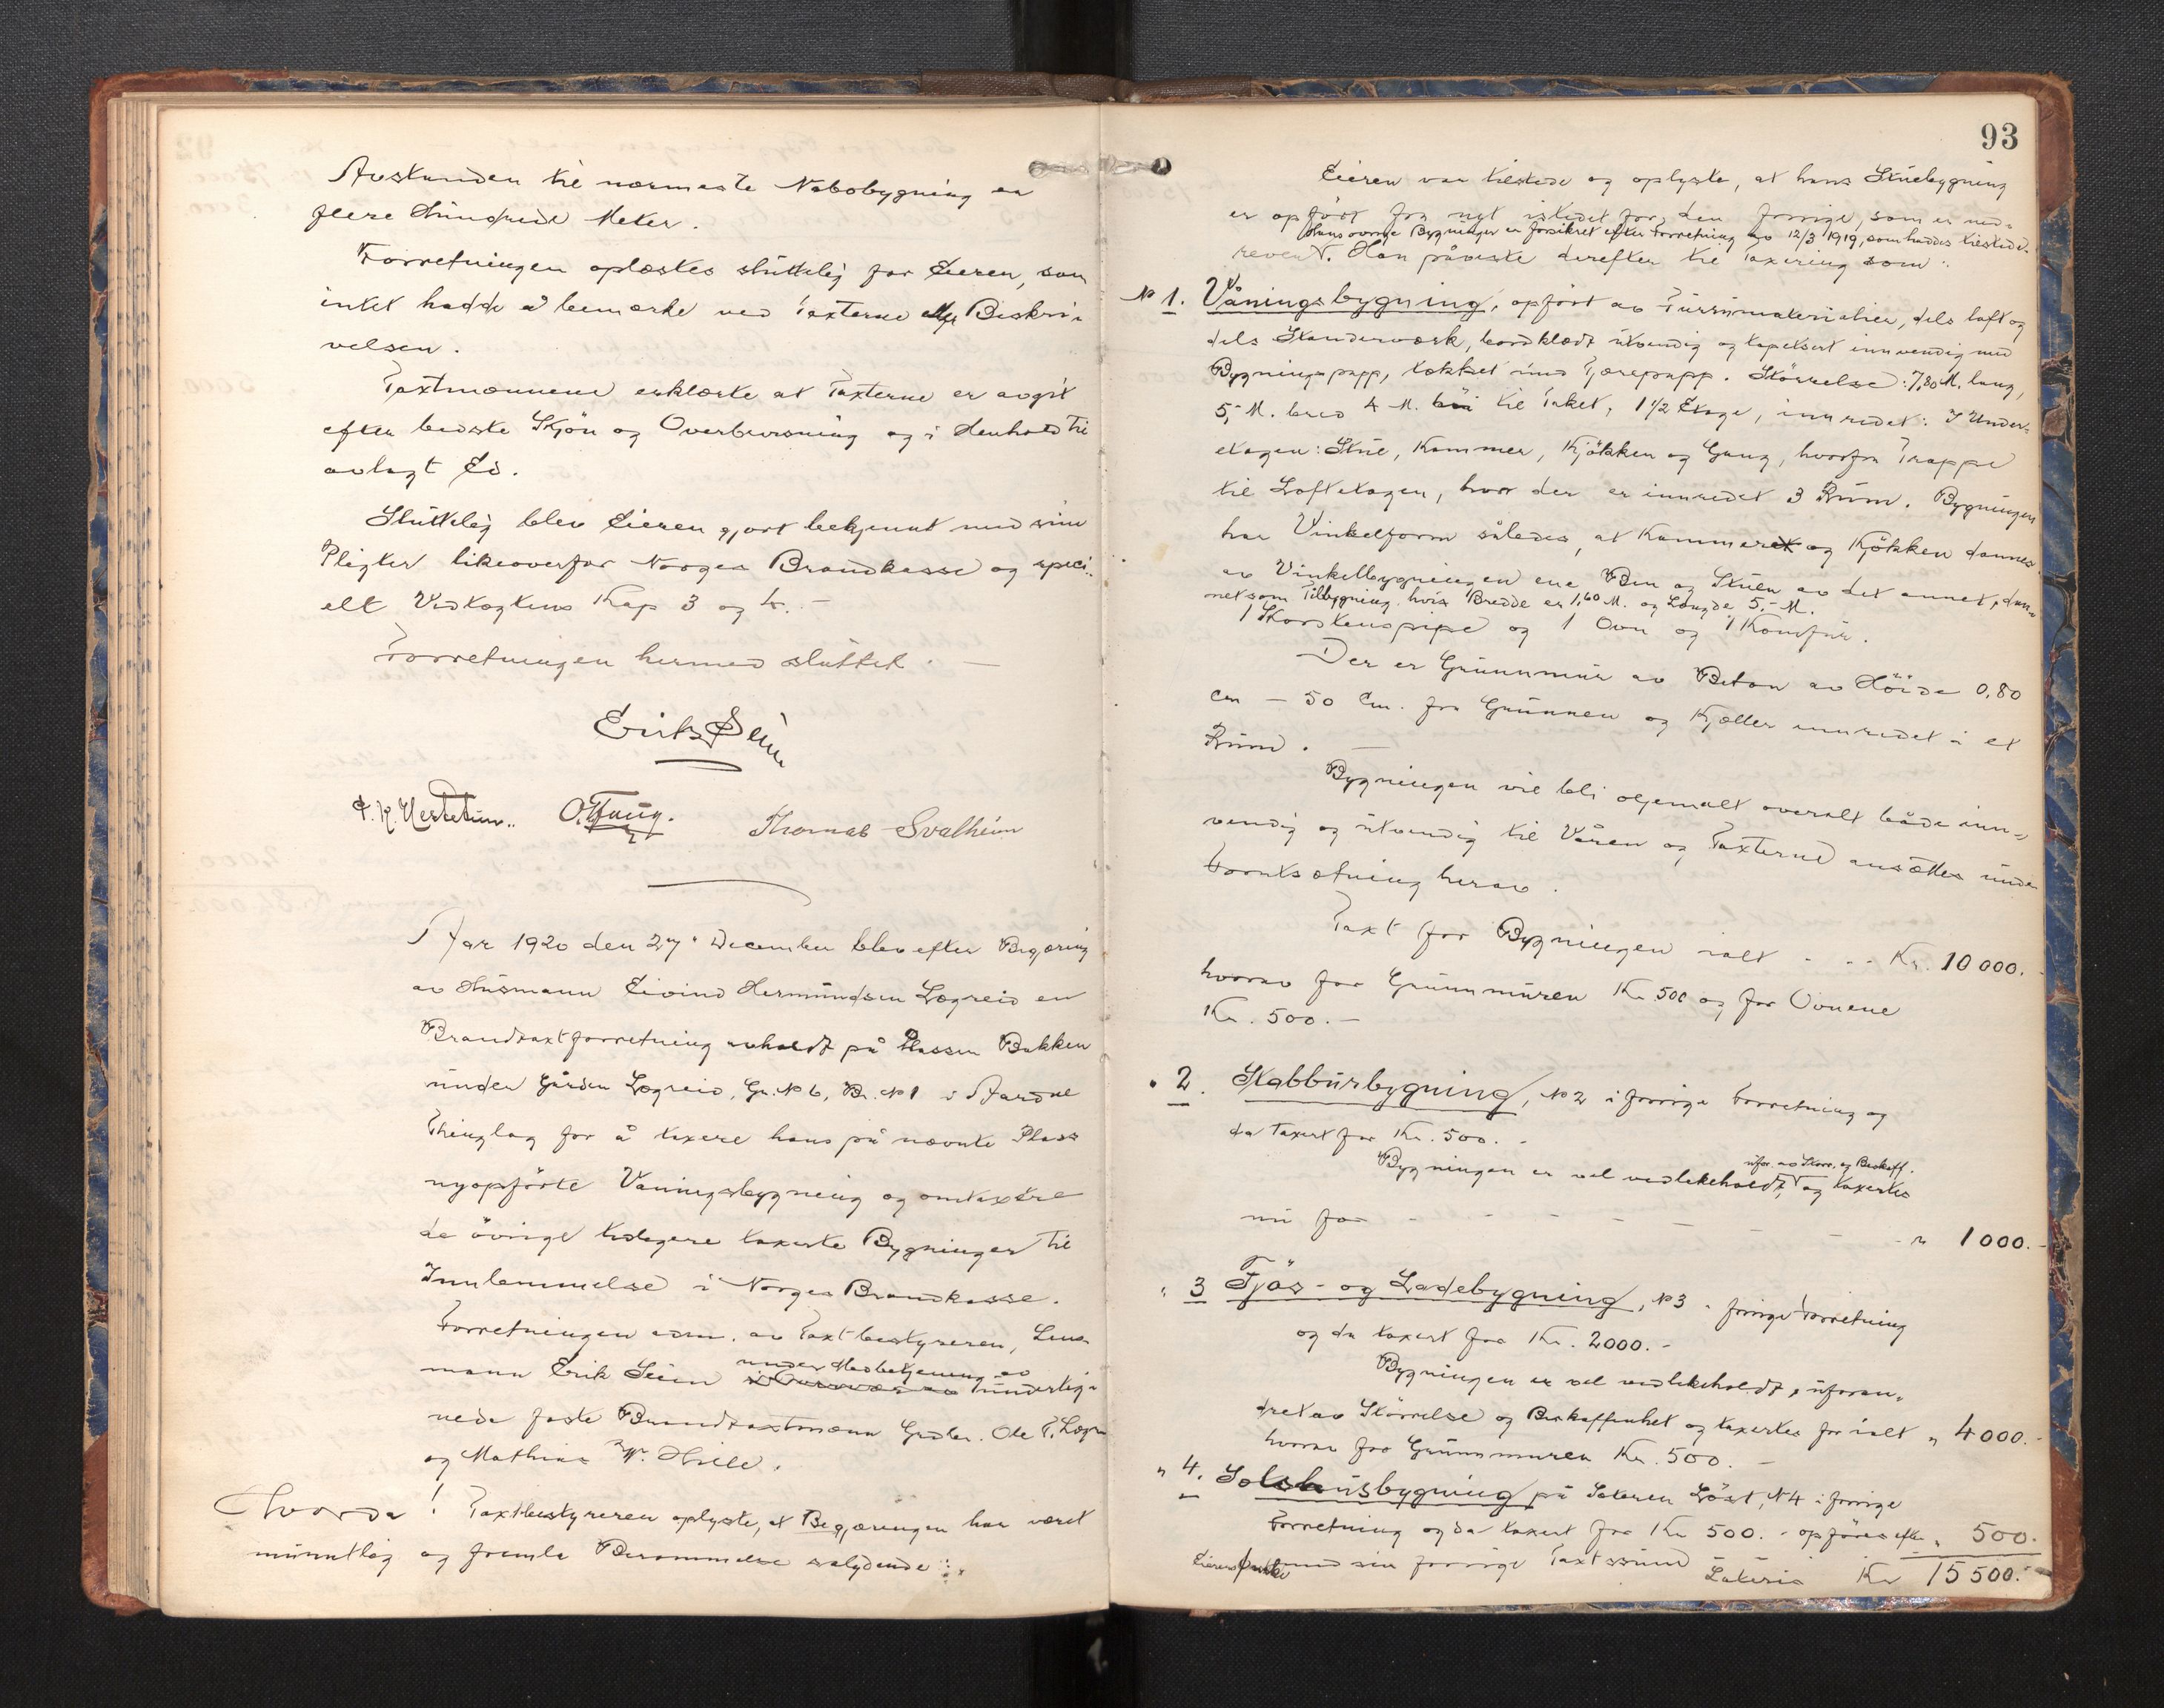 Avstanden til nærmeste Nabobygning er
flere Hundrede Meter.
Forretningen oplæstes sluttelig for Eieren, som
intet hadde å bemærke ved Taxterne Beskri-
velsen.
Taxtmænnene erklærte at Taxterne er avgit
efter bedste Skjøn og Overbevisning og i Henhold til
avlagt Ed.
Sluttelig blev Eieren gjort bekjennt med sine
Pligter likeoverfor Norges Brandkasse og speci-
elt Vedtægtens Kap 3 og 4. -
Forretningen hermed sluttet. -
Erik Seim
Thomas Svalheim
År 1920 den 27. December blev efter Begjæring
av Husmann Eivind Hermundsen Lægreid en
Brandtaxtforretning avholdt på Plassen Bakken
under Gården Lægreid, Gr. № 6, Br. № 1 i Aardal
Thinglag for å taxere hans på nævnte Plass
nyopførte Våningsbygning og omtaxere
de øvrige tidligere taxerte Bygninger til
Innlemmelse i Norges Brandkasse.
Forretningen adm. av Taxtbestyreren, Lens-
mann Erik Seim under Medbetjening av underteg-
nede faste Brandtaxtmænn Grdbr. Ole T. Lægr
og Mathias W. Hille.
Hvorda! Taxtbestyreren oplyste, at Begjæringen har været
munntlig og fremla Berammelse salydende:
93
Eieren var tilstede og oplyste, at hans Stuebygning
er opført fra nyt istedet for den forrige, som er ned-
Hans øvrige Bygninger er forsikret efter Forretning av 12/3 1919, som haddes tilstede.
revet. Han påviste derefter til Taxering som:
№ 1. Våningsbygning, opført av Furumaterialier, dels laft og
dels Standerværk, bordklædt utvendig og tapetsert innvendig med
Bygningspapp, tækket med Tjærepapp. Størrelse: 7,80 M. lang,
5,- M. bred 4 M. høi til Taket, 1 1/2 Etage, innredet: I Under-
etagen: Stue, Kammer, Kjøkken og Gang, hvorfra Trappe
til Loftetagen, hvor der er innredet 3 Rum. Bygningen
har Vinkelform således, at Kammeret og Kjøkken dannes
av Vinkelbygningen ene Ben og Stuen av det annet, dan-
net som Tilbygning hvis Bredde er 1,60 M. og Længde 5,- M.
1 Skorstenspipe og 1 Ovn og 1 Komfur.
Der er Grunnmur av Beton av Höide 0,80
cm - 50 Cm. fra Grunnen og Kjæller innredet i et
Rum. -
Bygningen vil bli oljemalt overalt både inn-
vendig og utvendig til Våren og Taxterne ansættes under
Forutsætning herav.
Taxt for Bygningen ialt - - - Kr. 10 000.-
hvorav for Grunnmuren Kr. 500 og for Ovnene
Kr. 500. -
" 2. Stabbursbygning, № 2 i forrige Forretning og
da taxert for Kr. 500. -
Bygningen er vel vedlikeholdt, ufor. av Størr. og Beskaff. og taxertes
nu for - - - - - - - " 1000.-
" 3 Fjös- og Ladebygning, № 3 i forrige Forretning
og da taxert for Kr. 2000. -
Bygningen er vel vedlikeholdt, uforan-
dret av Størrelse og Beskaffenhet og taxertes for ialt " 4000.-
hvorav for Grunnmuren Kr. 500. -
" 4. Selshusbygning på Sæteren Löst, № 4 i forrige
Forretning og da taxert for Kr 500. - opføres efter " 500.
Eierens Ønske med sin forrige Taxtssum Lateris Kr 15 500.-